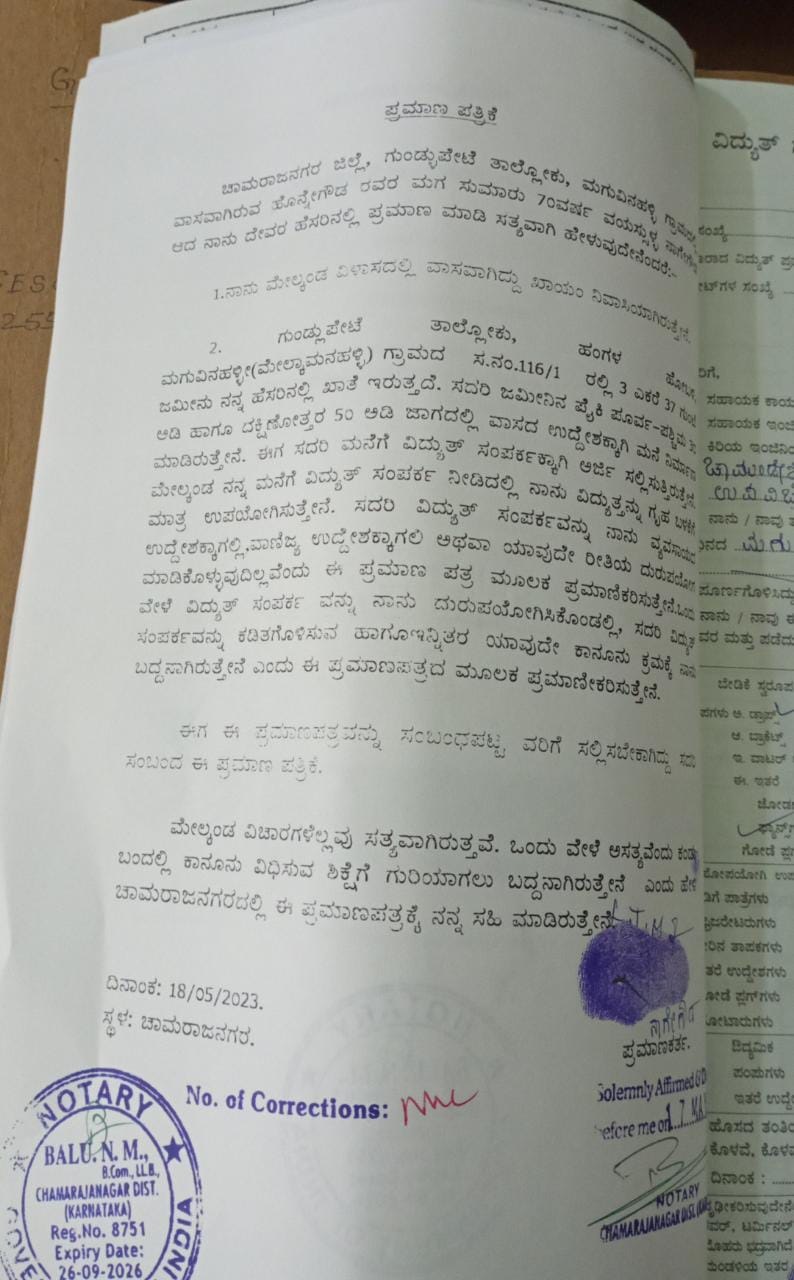 ಪ್ರಮಾಣ ಪತ್ರಿಕೆ
ಚಾಮರಾಜನಗರ ಜಿಲ್ಲೆ, ಗುಂಡ್ಲುಪೇಟೆ ತಾಲ್ಲೋಕು, ಮಗುವಿನಹಳ್ಳಿ
ವಾಸವಾಗಿರುವ ಹೊನ್ನೇಗೌಡ ರವರ ಮಗ ಸುಮಾರು 70ವರ್ಷ ವಯಸ್ಸುಳ್ಳ
ಆದ ನಾನು ದೇವರ ಹೆಸರಿನಲ್ಲಿ ಪ್ರಮಾಣ ಮಾಡಿ ಸತ್ಯವಾಗಿ ಹೇಳುವುದೇನೆಂದರೆ:-
1.ನಾನು ಮೇಲ್ಕಂಡ ವಿಳಾಸದಲ್ಲಿ ವಾಸವಾಗಿದ್ದು ಖಾಯಂ ನಿವಾಸಿಯಾಗಿರುತ್ತೇನೆ.
2. ಗುಂಡ್ಲುಪೇಟೆ ತಾಲ್ಲೋಕು, ಹಂಗಳ
ಮಗುವಿನಹಳ್ಳೀ(ಮೇಲ್ಕಾಮನಹಳ್ಳಿ) ಗ್ರಾಮದ ಸ.ನಂ.116/1 ರಲ್ಲಿ 3 ಎಕರೆ 37 ಗುಂಟೆ
ಜಮೀನು ನನ್ನ ಹೆಸರಿನಲ್ಲಿ ಖಾತೆ ಇರುತ್ತದೆ. ಸದರಿ ಜಮೀನಿನ ಪೈಕಿ ಪೂರ್ವ-ಪಶ್ಚಿಮ
ಅಡಿ ಹಾಗೂ ದಕ್ಷಿಣೋತ್ತರ 50 ಅಡಿ ಜಾಗದಲ್ಲಿ ವಾಸದ ಉದ್ದೇಶಕ್ಕಾಗಿ ಮನೆ ನಿರ್ಮಾಣ
ಮಾಡಿರುತ್ತೇನೆ. ಈಗ ಸದರಿ ಮನೆಗೆ ವಿದ್ಯುತ್ ಸಂಪರ್ಕಕ್ಕಾಗಿ ಅರ್ಜಿ ಸಲ್ಲಿಸುತ್ತಿರುತ್ತೇನೆ.
ಮೇಲ್ಕಂಡ ನನ್ನ ಮನೆಗೆ ವಿದ್ಯುತ್ ಸಂಪರ್ಕ ನೀಡಿದಲ್ಲಿ ನಾನು ವಿದ್ಯುತ್ತನ್ನು ಗೃಹ ಬಳಕೆಗೆ
ಮಾತ್ರ ಉಪಯೋಗಿಸುತ್ತೇನೆ. ಸದರಿ ವಿದ್ಯುತ್ ಸಂಪರ್ಕವನ್ನು ನಾನು ವ್ಯವಸಾಯದ
ಉದ್ದೇಶಕ್ಕಾಗಲ್ಲಿ,ವಾಣಿಜ್ಯ ಉದ್ದೇಶಕ್ಕಾಗಲಿ ಅಥವಾ ಯಾವುದೇ ರೀತಿಯ ದುರುಪಯೋಗ
ಮಾಡಿಕೊಳ್ಳುವುದಿಲ್ಲವೆಂದು ಈ ಪ್ರಮಾಣ ಪತ್ರ ಮೂಲಕ ಪ್ರಮಾಣಿಕರಿಸುತ್ತೇನೆ.ಒಂದು
ವೇಳೆ ವಿದ್ಯುತ್ ಸಂಪರ್ಕ ವನ್ನು ನಾನು ದುರುಪಯೋಗಿಸಿಕೊಂಡಲ್ಲಿ, ಸದರಿ ವಿದ್ಯುತ್
ಸಂಪರ್ಕವನ್ನು ಕಡಿತಗೊಳಿಸುವ ಹಾಗೂಇನ್ನಿತರ ಯಾವುದೇ ಕಾನೂನು ಕ್ರಮಕ್ಕೆ ನಾನು
ಬದ್ದನಾಗಿರುತ್ತೇನೆ ಎಂದು ಈ ಪ್ರಮಾಣಪತ್ರದ ಮೂಲಕ ಪ್ರಮಾಣೀಕರಿಸುತ್ತೇನೆ.
ಈಗ ಈ ಪ್ರಮಾಣಪತ್ರವನ್ನು ಸಂಬಂಧಪಟ್ಟ ವರಿಗೆ ಸಲ್ಲಿಸಬೇಕಾಗಿದ್ದು ಸದರಿ
ಸಂಬಂದ ಈ ಪ್ರಮಾಣ ಪತ್ರಿಕೆ.
ಮೇಲ್ಕಂಡ ವಿಚಾರಗಳೆಲ್ಲವು ಸತ್ಯವಾಗಿರುತ್ತವೆ. ಒಂದು ವೇಳೆ ಅಸತ್ಯವೆಂದು ಕಂಡು
ಬಂದಲ್ಲಿ ಕಾನೂನು ವಿಧಿಸುವ ಶಿಕ್ಷೆಗೆ ಗುರಿಯಾಗಲು ಬದ್ದನಾಗಿರುತ್ತೇನೆ ಎಂದು ಹೇಳಿ
ಚಾಮರಾಜನಗರದಲ್ಲಿ ಈ ಪ್ರಮಾಣಪತ್ರಕ್ಕೆ ನನ್ನ ಸಹಿ ಮಾಡಿರುತ್ತೇನೆ.
ದಿನಾಂಕ: 18/05/2023.
ಸ್ಥಳ: ಚಾಮರಾಜನಗರ.
ನಾಗೇಗೌಡ
ಪ್ರಮಾಣಕರ್ತ.
No. of Corrections:
Solemnly Affirmed
before me on
NOTARY
CHAMARAJANAGAR DIST.
NOTARY
BALU. N. M.,
B.Com., LL.B.,
CHAMARAJANAGAR DIST.
(KARNATAKA)
Reg.No. 8751
Expiry Date:
26-09-2026
INDIA
ವಿದ್ಯುತ್
ಸಹಾಯಕ
ಸಹಾಯಕ ಇಂಜಿ
ಕಿರಿಯ ಇಂಜಿನಿ
ನಾನು / ನಾವು
ನಾನು / ನಾವು ಈ
ಬೇಡಿಕೆ ಸ್ವರೂಪ
ಅ. ಡ್ರಾಪ್
ಆ. ಬ್ರಾಕೆಟ್ಸ್
ಇ. ವಾಟರ್
ಈ. ಇತರೆ
ಔದ್ಯಮಿಕ
ಪಂಪುಗಳು
ಇತರೆ ಉದ್ದೇ
ದಿನಾಂಕ :